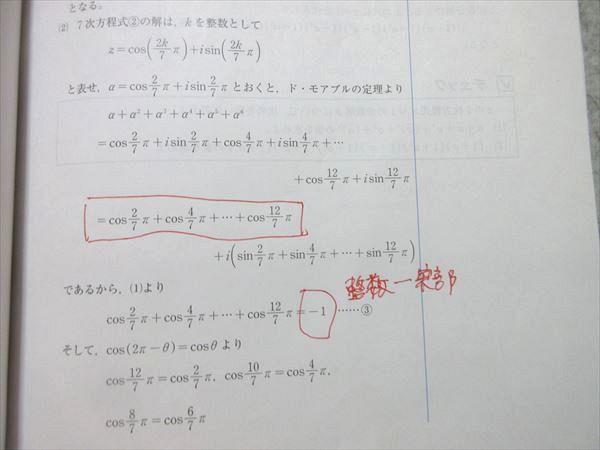 となる。
(2) 7次方程式②の解は，kを整数として
z=cos(2k/7 π)+i sin(2k/7 π)
と表せ，α=cos 2/7 π+i sin 2/7 π とおくと，ド・モアブルの定理より
α+α²+α³+α⁴+α⁵+α⁶
=cos 2/7 π+i sin 2/7 π+cos 4/7 π+i sin 4/7 π+…
+cos 12/7 π+i sin 12/7 π
=cos 2/7 π+cos 4/7 π+…+cos 12/7 π
+i(sin 2/7 π+sin 4/7 π+…+sin 12/7 π)
整数一実部
であるから，(1)より
cos 2/7 π+cos 4/7 π+…+cos 12/7 π=-1 ……③
そして，cos(2π-θ)=cosθ より
cos 12/7 π=cos 2/7 π，cos 10/7 π=cos 4/7 π，
cos 8/7 π=cos 6/7 π